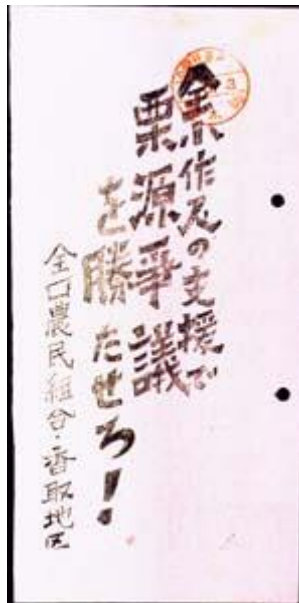 全小作人の支援で
栗源爭議
を勝たせろ!
全口農民組合・香取地区